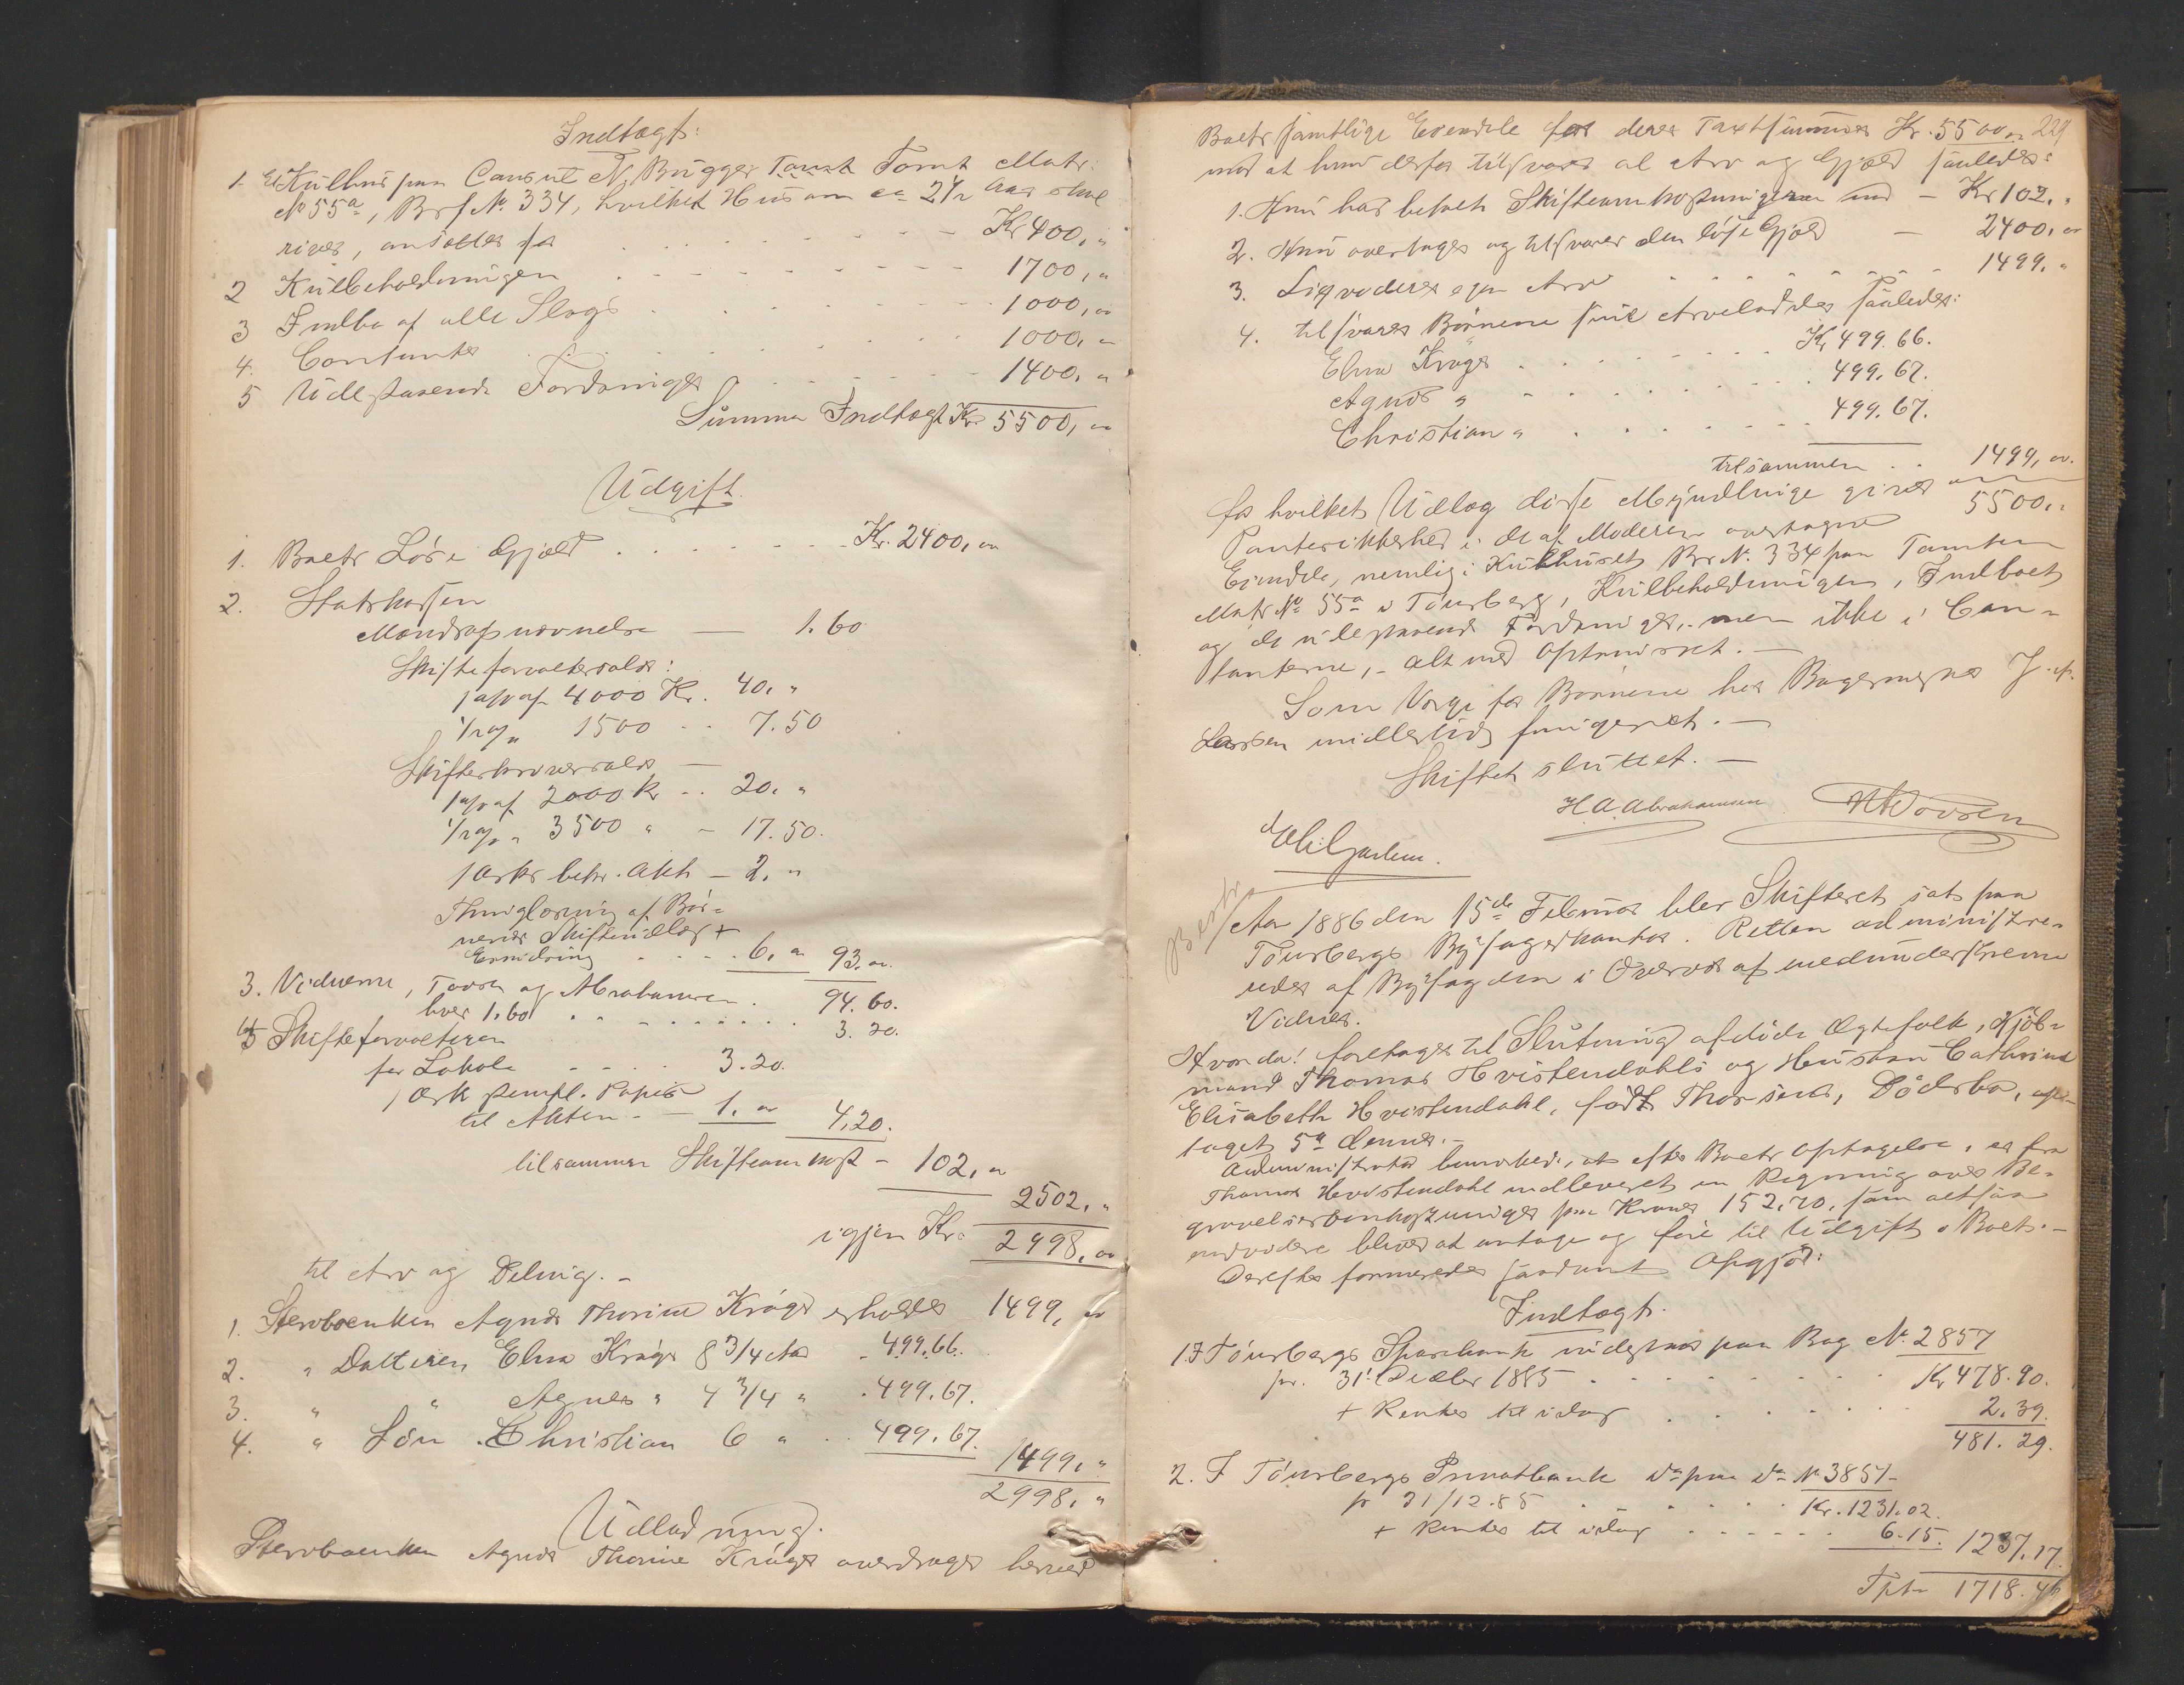 Indtægt:
1. Et Kulhus paa Consul N. Bugges Tomt Matr:
No 55a, Brf No. 334, hvilket Hus om ca 2 1/2 Aar skal
rives, ansættes for Kr 400, "
2 Kulbeholdningen 1700, "
3 Indbo af alle Slags 1000, "
4. Contanter 1000, "
5 Udestaaende Fordringer 1400, "
Summa Indtægt Kr 5500, "
Udgift.
1. Boets Løse Gjæld Kr. 2400, "
2. Statskassen
Mandtafs nævnelse — 1.60
Skifteforvaltersalær:
1 % af 4000 Kr. 40, "
1/2 % " 1500 .. 7.50
Skifteskriversalær —
1 % af 2000 Kr .. 20, "
1/2 % " 3500 " - 17.50.
1 Arks bekr. Akt — 2, "
Thinglæsning af Bør=
nenes Skifteudlæg +
6, " 93, "
94.60.
3. Vidnerne, Tovsen og Abrahamsen.
hver 1.60 3.20.
4 Skifteforvalteren
for Lokale 3.20.
1 Ark stempl. Papir
til Akten - — 1, " 4,20.
tilsammen Skifteomkost - 102, "
2502, "
igjen Kr. 2998, "
til Arv og Deling. -
1. Stervboenken Agnes Thorine Krøger erholder 1499, "
2. " Datteren Elna Krøger 8 3/4 Aar - 499.66.
3. " " Agnes " 7 3/4 " . 499.67.
4. " Søn Christian 6 " .. 499.67.
1499, "
2998, "
Udlodning.
Stervboenken Agnes Thorine Krøger overdrages herved
229
Boets samtlige Eiendele for deres Taxtsummer Kr. 5500 "
mod at hun derfor tilsvarer al Arv og Gjæld saaledes:
1. Hun har betalt Skifteomkostningerne med — Kr 102, "
2. Hun overtager og tilsvarer den løse Gjæld — 2400, "
3. Liqviderer egen Arv 1499, "
4. tilsvarer Børnene sine Arvelodder saaledes:
Elna Krøger Kr 499.66.
Agnes " 499.67.
Christian " 499.67.
tilsammen .. 1499, "
5500, "
for hvilket Udlæg disse Myndlinge gives
Pantesikkerhed i de af Moderen overtagne
Eiendele, nemlig i Kulhuset Br No. 334 paa Tomten
Matr No 55a i Tønsberg, Kulbeholdningen, Indboet
og de udestaaende Fordringer, men ikke i Con=
tanterne, - alt med Optrinsret. —
Som Værge for Børnene har Bagermester J.
Larsen midlertidig fungeret. —
Skiftet sluttet. —
H.A. Abrahamsen
Aar 1886 den 15de Februar blev Skifteret sat paa
Tønsbergs Byfogedkontor. Retten administre=
redes af Byfogden i Overvær af medunderskrevne
Vidner.
Hvorda! foretages til Slutning afdøde Ægtefolk, Kjøb=
mand Thomas Hvistendahls og Hustru Cathrine
Elisabeth Hvistendahl, født Thorsens, Dødsbo,
taget 5te dennes. —
Administrator bemærkede, at efter Boets Optagelse, er fra
Thomas Hvistendahl indleveret en Regning over Be=
gravelsesomkostninger paa Kroner 152,70, som altsaa
endvidere bliver at antage og føre til Udgift i Boet. —
Derefter formeredes saadant Opgjør:
Indtægt.
1. I Tønsbergs Sparebank indestaar paa Bog No. 2857
pr. 31. Decbr 1885 Kr 478.90.
+ Renter til idag 2.39.
481.29.
2. I Tønsbergs Privatbank do paa do No 3857 -
pr 31/12.85 Kr. 1231.02.
+ Renter til idag 6.15. 1237.17.
Tptr 1718.46